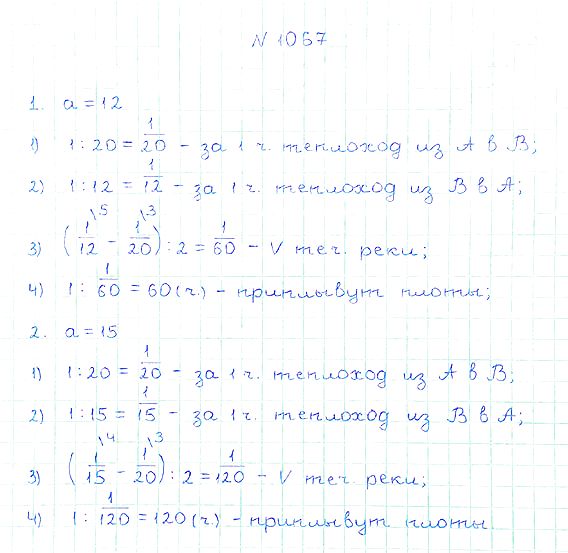 № 1067
1. a = 12
1) 1 : 20 = 1/20 – за 1 ч. теплоход из А в В;
2) 1 : 12 = 1/12 – за 1 ч. теплоход из В в А;
3) (1/12 \5 – 1/20 \3) : 2 = 1/60 – V теч. реки;
4) 1 : 1/60 = 60 (ч.) – приплывут плоты;
2. a = 15
1) 1 : 20 = 1/20 – за 1 ч. теплоход из А в В;
2) 1 : 15 = 1/15 – за 1 ч. теплоход из В в А;
3) (1/15 \4 – 1/20 \3) : 2 = 1/120 – V теч. реки;
4) 1 : 1/120 = 120 (ч.) – приплывут плоты.